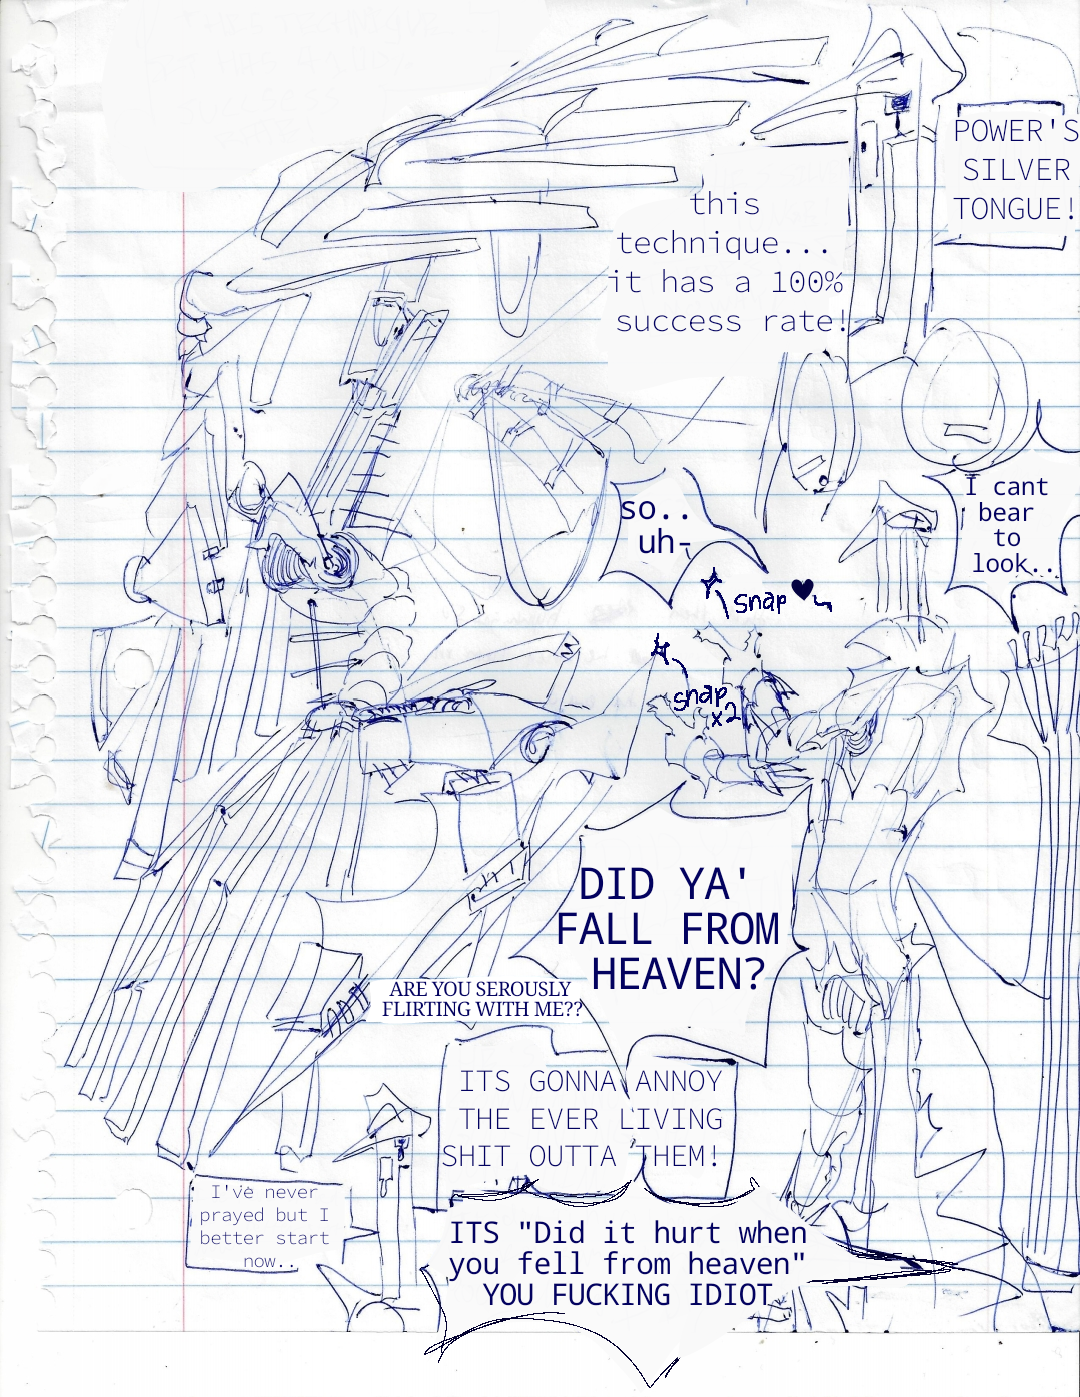 POWER'S
SILVER
TONGUE!
this
technique...
it has a 100%
success rate!
I cant
bear
to
look..
so..
uh-
snap
snap
x2
DID YA'
FALL FROM
HEAVEN?
ARE YOU SEROUSLY
FLIRTING WITH ME??
ITS GONNA ANNOY
THE EVER LIVING
SHIT OUTTA THEM!
I've never
prayed but I
better start
now..
ITS "Did it hurt when
you fell from heaven"
YOU FUCKING IDIOT